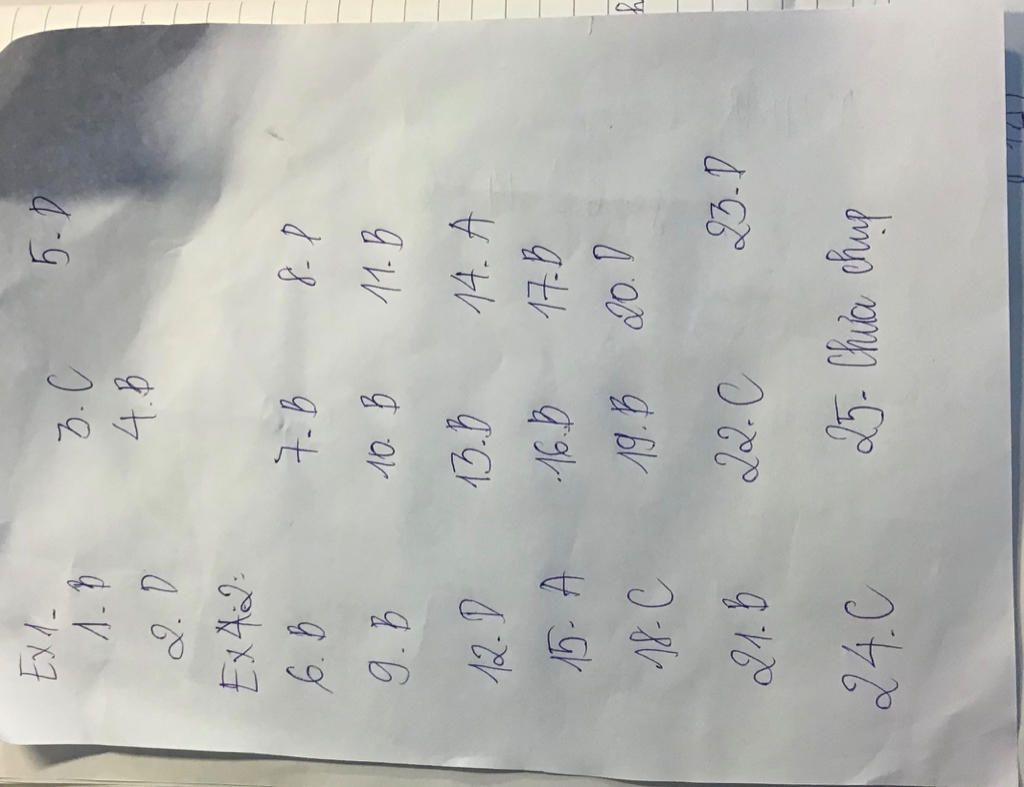 Ex1-
1. B 3. C 5. D
2. D 4. B
Ex 2:
6. B 7- B 8- D
9. B 10. B 11. B
12. D 13. B 14. A
15- A 16. B 17- B
18- C 19. B 20. D
21. B 22. C 23- D
24. C 25- Chưa chụp